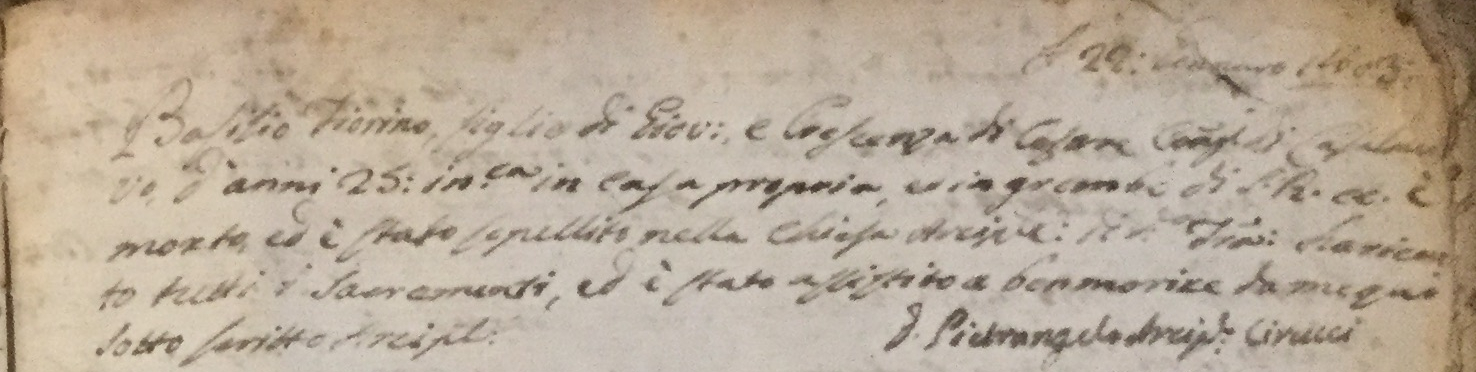 A 22: Gennaro 1803:
Basilio Fiorino, figlio di Giov:, e Crescenza di Cesare Conj: di Casalnuo
vo, d'anni 25: in.ca in casa propria, ed in grembo di S. R. cc. è
morto, ed è stato sepellito nella Chiesa Arcip.le:
to tutti i Sacramenti, ed è stato assistito a ben morire da me qui
sotto scritto Arcipl:
D. Pietrangelo Arcip.e Cirucci